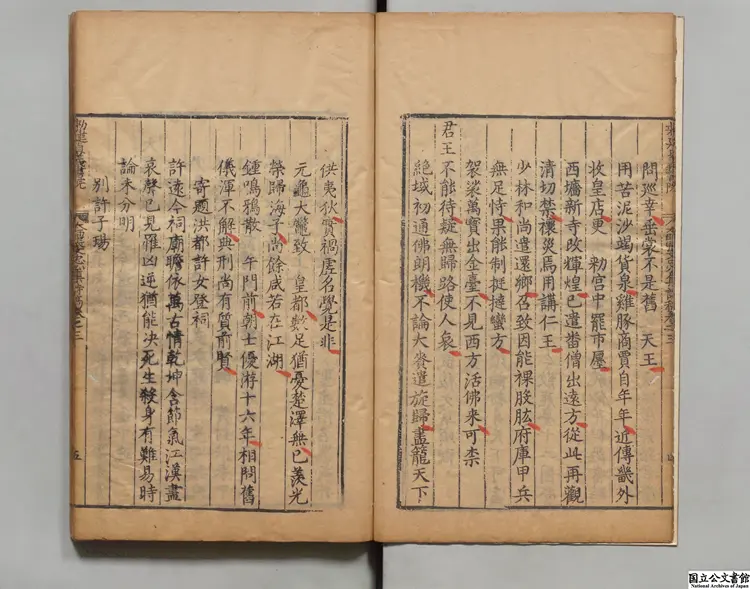 問巡幸岳裳不是舊 天王
用苦泥沙竭貨泉雞豚商賈自年年近傳畿外
收皇店更 勑宮中罷市㕓
西墻新寺改輝煌已遣畨僧出遠方從此再觀
清切禁禳災焉用講仁王
少林和尚遣還鄉召致因能裸股肱府庫甲兵
無足恃果能制挺撻蠻方
袈裟萬寶出金臺不見西方活佛來可柰
君王不能待疑無歸路使人哀
絕域初通佛朗機不論大賚遣旋歸盡籠天下
供夷狄賈禍虛名覺是非
元龜大鱉致 皇都數足猶憂楚澤無已羨光
榮歸海子尚餘威若在江湖
鍾鳴鴉散 午門前朝士優游十六年相問舊
儀渾不解典刑尚有質前賢
寄題洪都許女登祠
許遠今祠廟瞻依萬古情乾坤含節氣江漢盡
哀聲已見羅凶逆猶能決死生殺身有難易時
論未分明
別許子瑒
五
国立公文書館
National Archives of Japan